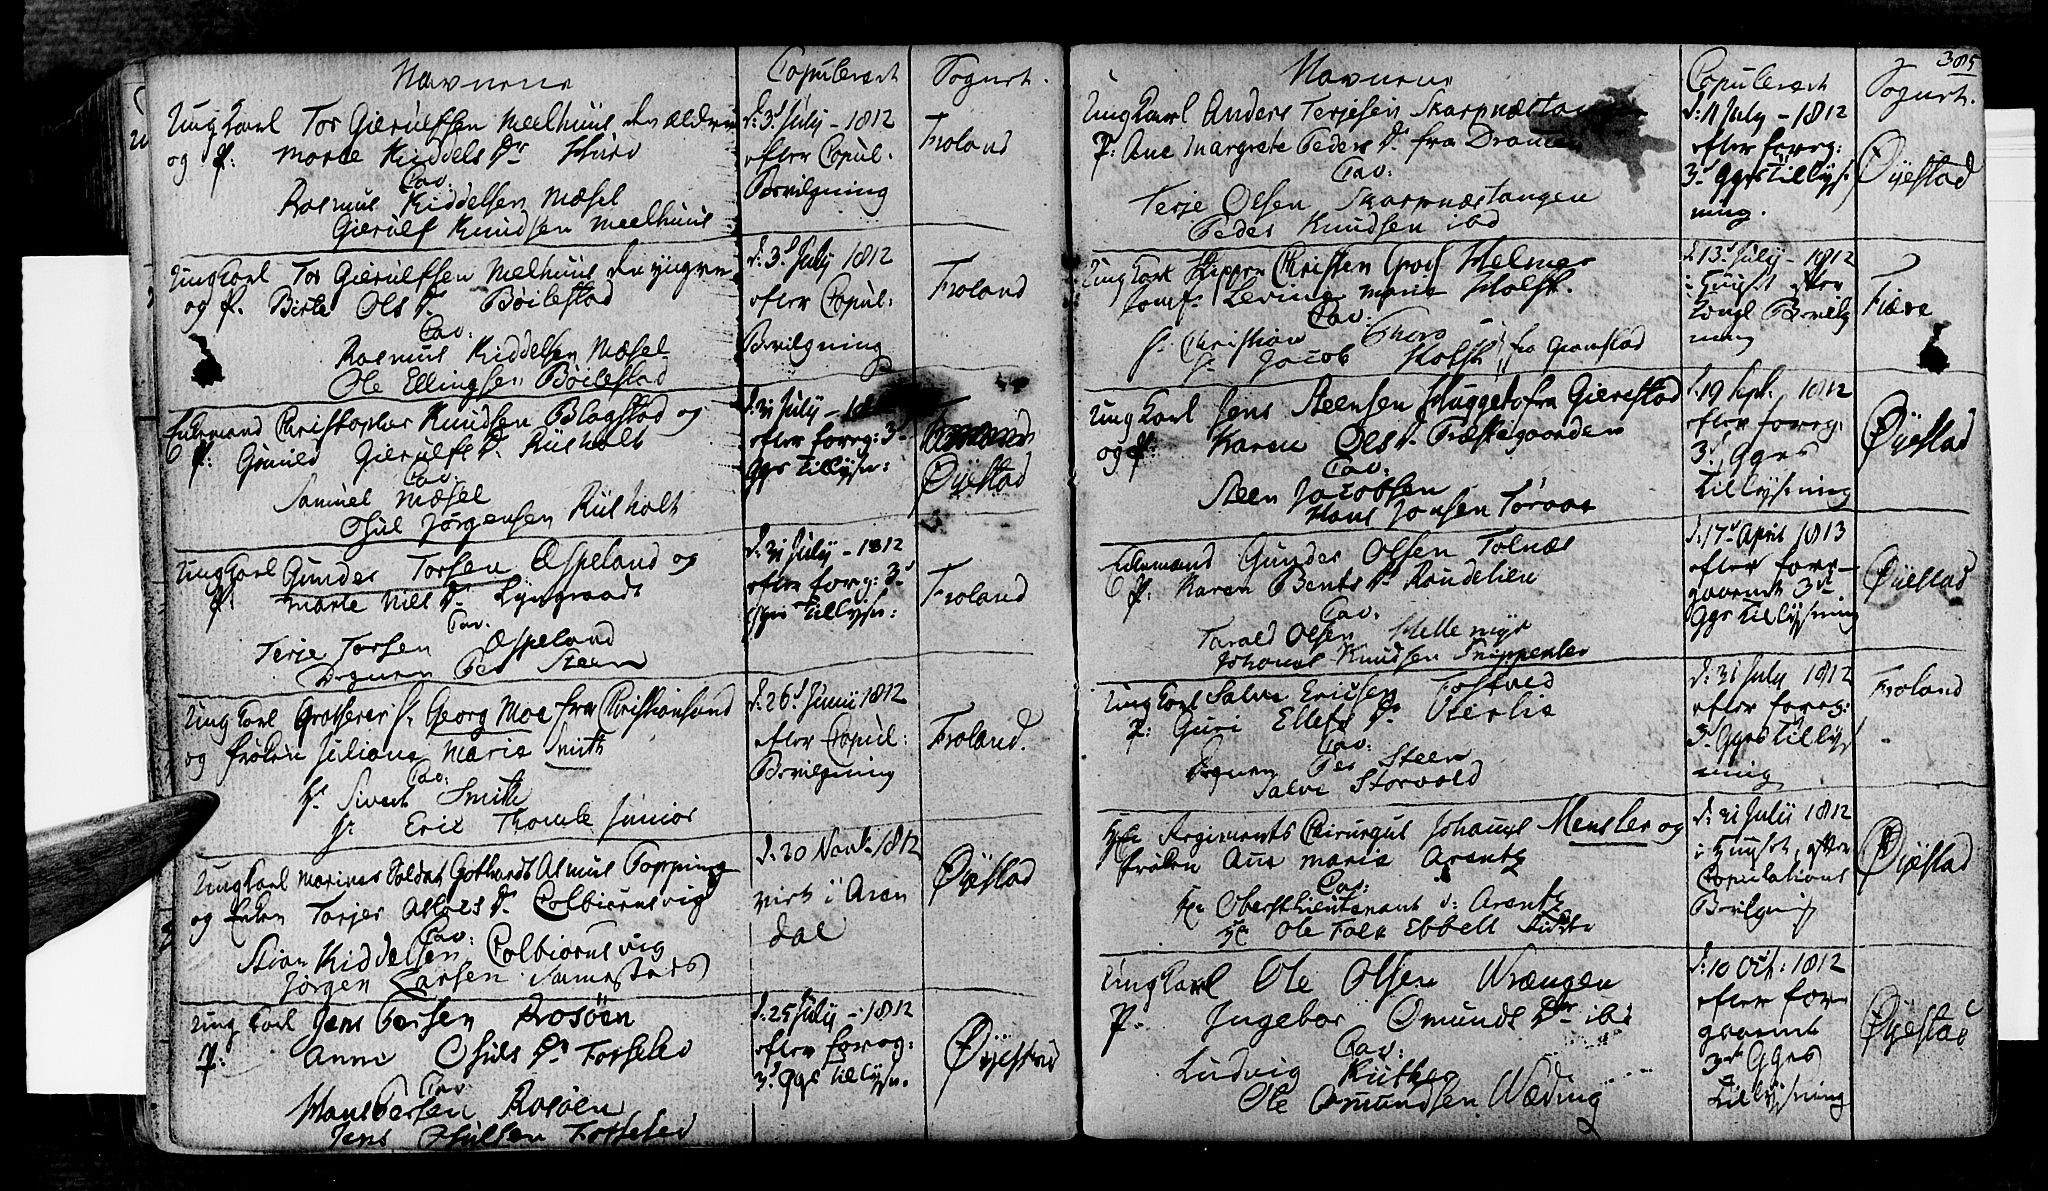 Navnene
Copuleret
Sognet.
Ung Karl Tor Gierulfsen Meelhuus den ældre
og P: Marte Kiddels Dr Huro
Cav:
Rasmus Kiddelsen Mæsel
Gierulf Knudsen Meelhuus
d: 3d July – 1812
efter Copul.
Bevilgning
Froland
Ung Karl Tor Gierulfsen Melhuus den yngre
og P. Birte Ols Dr Böilestad
Cav:
Rasmus Kiddelsen Mæsel
Ole Ellingsen Böilestad
d: 3d July 1812
efter Copul:
Bevilgning
Froland
Enkemand Christopher Knudsen Blagstad og
P: Gunild Gierulfs Dr Rusholt
Cav:
Samuel Mæsel
Osul Jörgensen Rusholt
d: 31 July – 18
efter foreg: 3d
Ggs Tillysn:
Öyestad
Ung Karl Gunder Torsen Espeland og
P: Marte Nils Dr Lyngraadt
Cav:
Terje Torsen Espeland
Degnen Per Steen
d: 31 July – 1812
efter foreg: 3d
Ggs Tillysn:
Froland
Ung Karl Grosserer Hr Georg Moe fra Christiansand
og Fröken Juliana Maria Smith
Cav:
Hr Sivert Smith
Hr Eric Thomle Junior
d: 26d Junii 1812
efter Copul:
Bevilgning
Froland.
Ung Karl Marines Soldat Gothardt Asmus Topping
og Enken Torjer Aslacs Dr Colbiörnsvig
Cav:
Stian Kiddelsen Colbiörnsvig
Jörgen Larsen Sømestads
d: 20 Novb. 1812
viet i Aren
dal
Öyestad
Ung Karl Jens Persen Rosöen
P: Anne Osuls Dr Torseler
Cav:
Hans Persen Rosöen
Jens Osulsen Torseler
d: 25 July – 1812
efter foreg:
3d Ggs Tillysn.
Öyestad
385
Navnene
Copuleret
Sognet.
Ung Karl Anders Terjesen Skarpnæstan
P: Ane Margrete Peders Dr fra
Cav:
Terje Olsen Skarpnæstangen
Peder Knudsen ibd
d: 11 July – 1812
efter foreg:
3d Ggs Tillys
ning.
Öyestad
Ung Karl Skipper Christen Helmer
Jomfr Levine Marie Holst.
Cav:
Hr Christian
Hr Jacob Holst fra Grimstad
d: 13d July – 1812
i Huuset efter
Kongl Bevilg
ning
Fiære
Ung Karl Jens Steensen Hugget fra Gierestad
og P: Karen Ols Dr Præstegaarden
Cav:
Steen Jacobsen
Hans Jonsen Toraas
d. 19 Sept. 1812
efter foreg:
3d Gges
Tillysning
Öyestad
Enkemand Gunder Olsen Tolnæs
P: Karen Bents Dr Rondelien
Cav:
Tarald Olsen Hellemyr
Johannes Knudsen
d: 17d April 1813
efter fore-
gaaende 3de
Ggs Tillysning
Öyestad
Ung Karl Salve Ericsen Fosvold
P: Guri Ellefs Dr Oterlie
Cav:
Degnen Per Steen
Salve Storvold
d: 31 July 1812
efter foreg:
3d Ggs Tillys
ning
Froland
Hr Regiments Chirurgus Johannes Mensler og
Fröken Ane Maria Arentz
Cav:
Hr Oberstlieutenant v: Arentz
Hr Ole Falk Ebbell
d: 21 Julii 1812
i Huuset, efter
Copulations
Bevilgning
Öyestad
Ung Karl Ole Olsen Vrængen
P. Ingebor Omunds Dr ibi
Cav:
Ludvig Rütker
Ole Omundsen Wæding
d: 10 Oct: 1812
efter fore-
gaaende
3de Gges
Tillysning
Öyestad